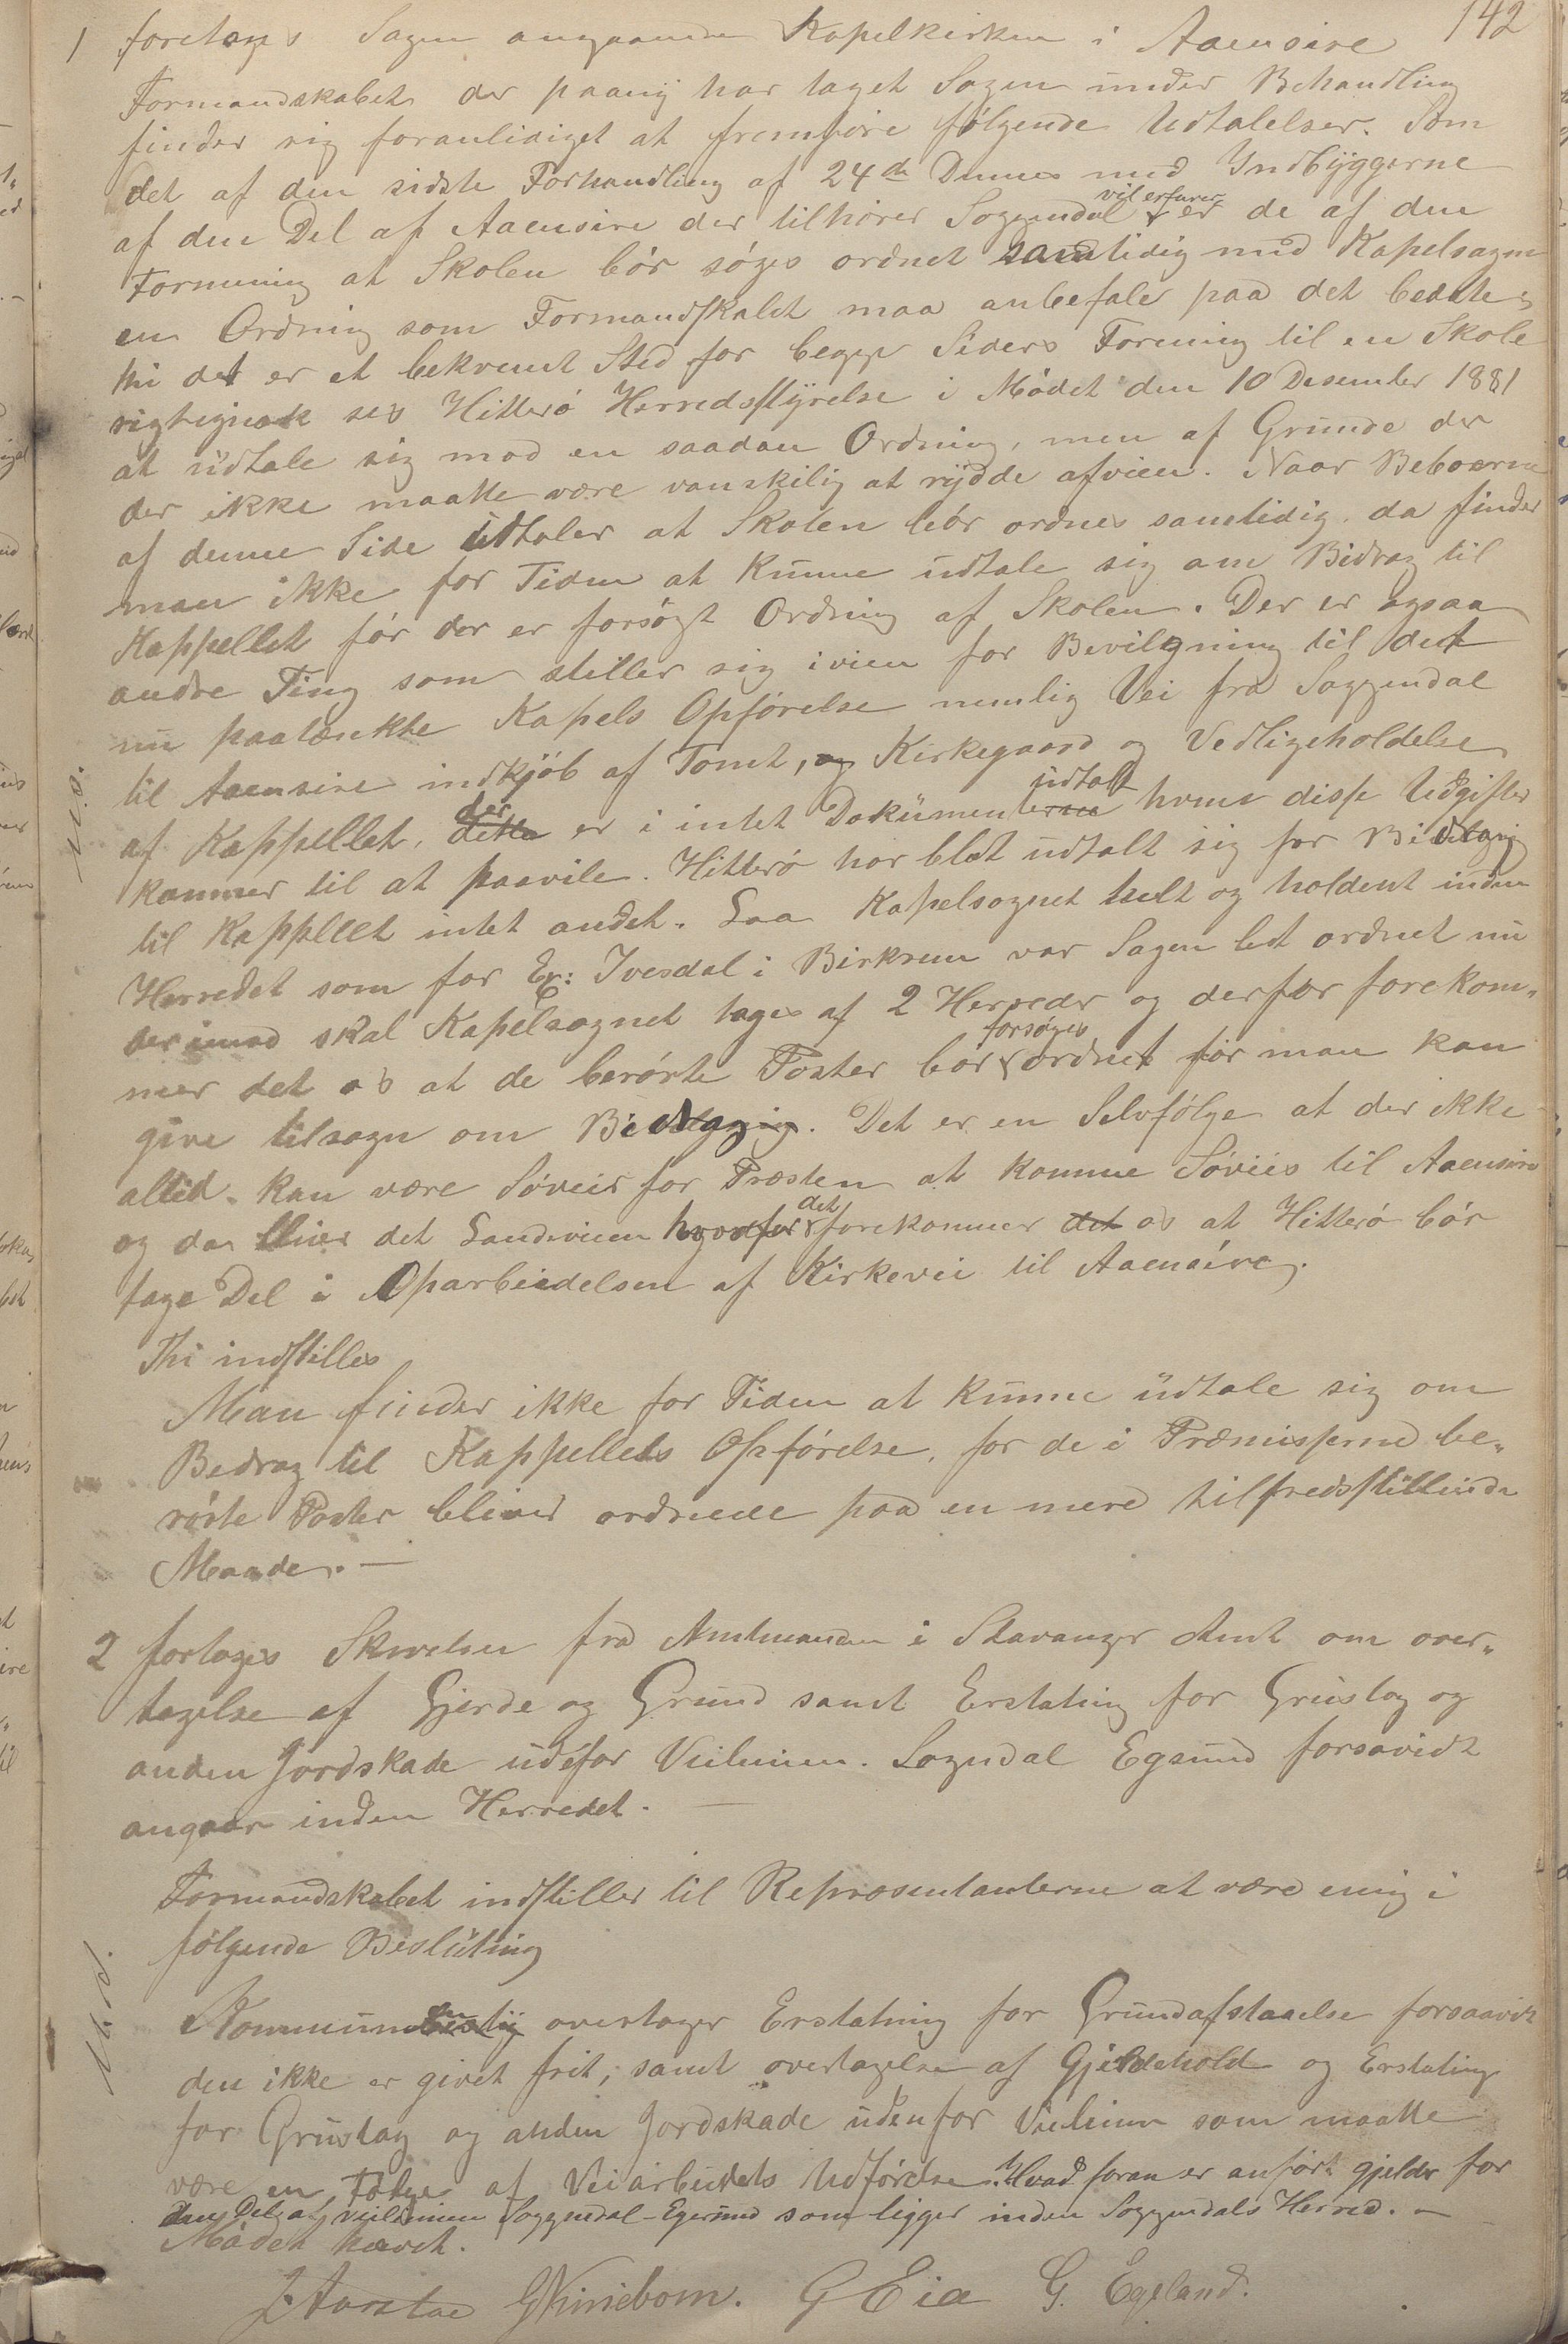 142
1 foretoges Sagen angaaende Kapelkirken i Aaensire
Formandskabet der paany har taget Sagen under Behandling
finder sig foranlidiget at fremføre følgende Udtalelser. Som
det af den sidste Forhandling af 24de Dennes med Indbyggerne
af den Del af Aaensire der tilhører Soggendal vil erfares er de af den
Formening at Skolen bør søges ordnet samtidig med Kapelsagen
en Ordning som Formandskabet maa anbefale paa det bedste,
thi det er et bekvemt Sted for begge Siders Forening til en Skole
rigtignok ses Hitterø Herredsstyrelse i Mødet den 10 Desember 1881
at udtale sig mod en saadan Ordning, men af Grunde der
der ikke maatte være vanskilig at rydde afveien. Naar Beboerne
af denne Side udtaler at Skolen bør ordnes samtidig, da finder
man ikke for Tiden at kunne udtale sig om Bidrag til
Kappellet før der er forsøgt Ordning af Skolen. Der er ogsaa
andre Ting som stiller sig iveien for Bevilgning til det
nu paatænkte Kapels Opførelse nemlig Vei fra Soggendal
til Aaensire indkjøb af Tomt, og Kirkegaard og Vedligeholdelse
af Kappellet, dette der er i intet Dokument erne udtalt hvem disse Udgifter
kommer til at paavile. Hitterø har blot udtalt sig for Bidrag
til Kappellet intet andet. Laa Kapelsognet helt og holdent inden
Herredet som for Ex: Ivesdal i Birkrem var Sagen let ordnet nu
derimod skal Kapelsognet tages af 2 Herreder og derfor forekom„
mer det os at de berørte Poster bør forsøges ordnet før man kan
give tilsagn om Bidrag. Det er en Selvfølge at der ikke
altid kan være Søveir for Præsten at komme Søveis til Aaensire
og da bliver det Landveien hvorfor det forekommer det os at Hitterø bør
tage Del i Oparbeidelsen af Kirkevei til Aaensire.
Thi indstilles
Man finder ikke for Tiden at kunne udtale sig om
Bedrag til Kappellets Opførelse, før de i Præmisserne be„
rørte Poster bliver ordnede paa en mere tilfredsstillende
Maade. —
2 fortoges Skrivelse fra Amtmanden i Stavanger Amt om over„
tagelse af Gjerde og Grund samt Erstatning for Grustag og
anden Jordskade udefor Veilinien. Sogndal Egsund forsavidt
angaar inden Herredet. —
Formandskabet indstiller til Repræsentanterne at være enig i
følgende Beslutning
Kommunen overtager Erstatning for Grundafstaaelse forsaavidt
den ikke er givet frit, samt overtagelse af Gjerdehold og Erstatning
for Grustag og anden Jordskade udenfor Veilinien som maatte
være en Følge af Veiarbeidets Udførelse. Hvad foran er anført gjelder for
den Del af veilinien Soggendal-Egersund som ligger inden Soggendals Herred. —
Mødet hævet.
J Aarstae G Kvinebom. G Eia G. Egeland.